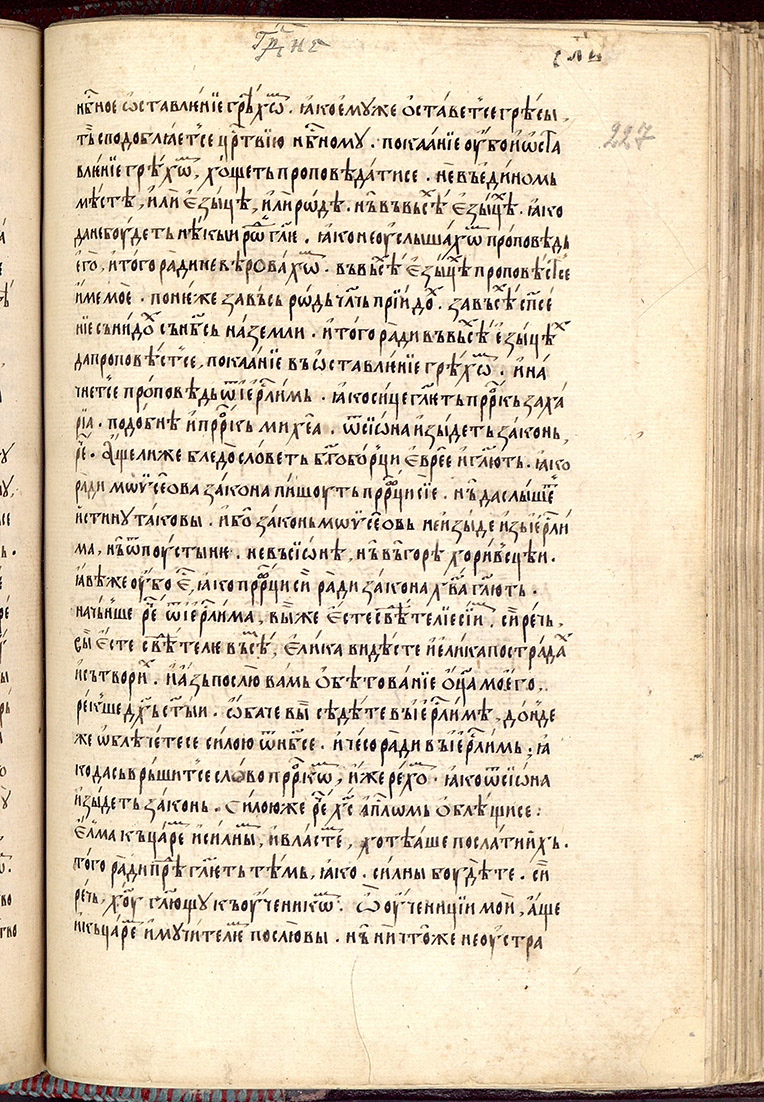 нбⷭ҇ное ѡ҆ставлѥ́нїе грѣхѡⷨ҇. ꙗ҆́коемꙋже ѻ҆ставетⸯсе грѣсы,
тъ̀ сподоблꙗ́етⸯсе црⷭ҇твїю нбⷭ҇номꙋ. покаꙗ́нїе оу҆́бо и҆ ѡ҆ста
влѥ́нїе грѣхѡⷨ҇, хо́щеть проповѣ́датисе. не въ є҆ди́номь
мѣ́стѣ, и҆лѝ є҆зы́цѣ, и҆лѝ рѡ́дѣ. нъ̀ въ вьсѣⷯ є҆зы́цѣⷯ. ꙗ҆́ко
да не боудеть нѣ́кыи рѡⷣ гл҃ѥ. ꙗ҆́ко не оу҆слы́шахѡⷨ про́повѣдь
є҆го̀, и҆ того̀ ра́ди не вѣ́ровахѡⷨ. въ вьсѣⷯ є҆зы́цѣⷯ проповѣ́стⸯсе
и҆́ме моѐ. поне́же за вьсь рѡ́дь чл҃чь прїи́доⷯ. за вьсѣⷯ сп҃се
нїе сьни́доⷯ съ нб҃сь на зе́мли. и҆ того̀ ра́ди въ вьсѣⷯ є҆зы́цѣⷯ
да проповѣ́стⸯсе, покаꙗ́нїе въ ѡ҆ставлѥ́нїе грѣхѡⷨ. и҆ на́
чнетⸯсе про́повѣдь ѿ і҆ерⷭ҇ли́мь. ꙗ҆́ко си́це гл҃ѥть прⷪ҇ркь заха́
рїа. подо́бнѣ и҆ прⷪ҇ркь михе́а. ѿ сїѡ́на и҆зы́деть зако́нь,
рⷱ҇е. а҆́ще ли же блед̾словеть бг҃обо́рци є҆вре́е и҆ гл҃ють. ꙗ҆́ко
ра́ди мѡѵсе́ова зако́на пи́шоуть прⷪ҇рци сїе. нъ̀ да слы́шеⷮ
и҆́стинꙋ таковы. и҆́бо зако́нь мѡѵсе́ѡвь не и҆зы́де и҆зь і҆ерⷭ҇ли
ма, нъ̀ ѿ поусты́нѥ. не въ сїѡ́нѣ, нъ̀ въ го́рѣ хори́вⸯсцѣи.
ꙗ҆́вѣ же оу҆́бо є҆ⷭ҇, ꙗ҆́ко прⷪ҇рци сѝ ра́ди зако́на дв҃а гл҃ють.
на́чьнше рⷱ҇е ѿ і҆ерⷭ҇ли́ма, вы́ же є҆сте свѣдѣ́телїе сїиⷨ. си́ рѣчь,
вы̀ є҆сте свѣдѣ́телѥ въсѣⷨ, є҆ли́ка ви́дѣсте и҆ є҆ли́ка пострадаⷯ
и҆ сътвориⷯ. и҆ а҆́зь послю̀ вамь ѻ҆бѣтова́нїе ѻ҆ц҃а моего̀,
рекше дх҃ь ст҃ы́и. ѻ҆́баче вы̀ сѣдѣ́те въ і҆ерⷭ҇ли́мѣ, до́нде
же ѡ҆блѣче́тесе си́лою ѿ нбⷭ҇е. и҆ чесо̀ ра́ди въ і҆ерⷭ҇ли́мь; ꙗ҆́
ко да сьврьши́тⸯсе сло́во прⷪ҇ркѡⷨ, и҆́же реко́ⷨ. ꙗ҆́ко ѿ сїѡ́на
и҆зы́деть зако́нь. Си́лою же рⷱ҇е хс҃ а҆пⷭ҇лѡмь ѻ҆блѣ́щисе:
Є҆лма къ ца́рѥⷨ и҆ си́лныⷨ, и҆ вла́стѥⷨ, хотѣ́аше посла́ти и҆́хь.
того̀ ра́ди прⷤе гл҃ѥть тѣ́мь, ꙗ҆́ко. си́лны боудѣ́те. си́
рѣчь, хо́у гл҃ющꙋ къ оу҆ченикѡⷨ. Ѽ оу҆чени́цїи мои̏, а҆́ще
и҆ къ ца́рѥⷨ и҆ мꙋчи́телѥⷨ послю̀ вы. нъ̀ ничто́же не оу҆стра
227